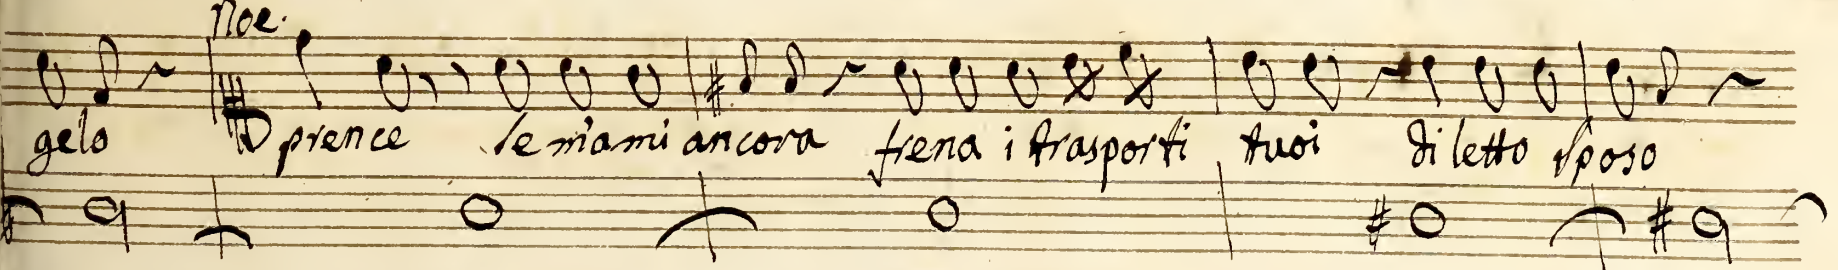 Noe.
gelo prence se m'ami ancora frena i trasporti tuoi diletto sposo